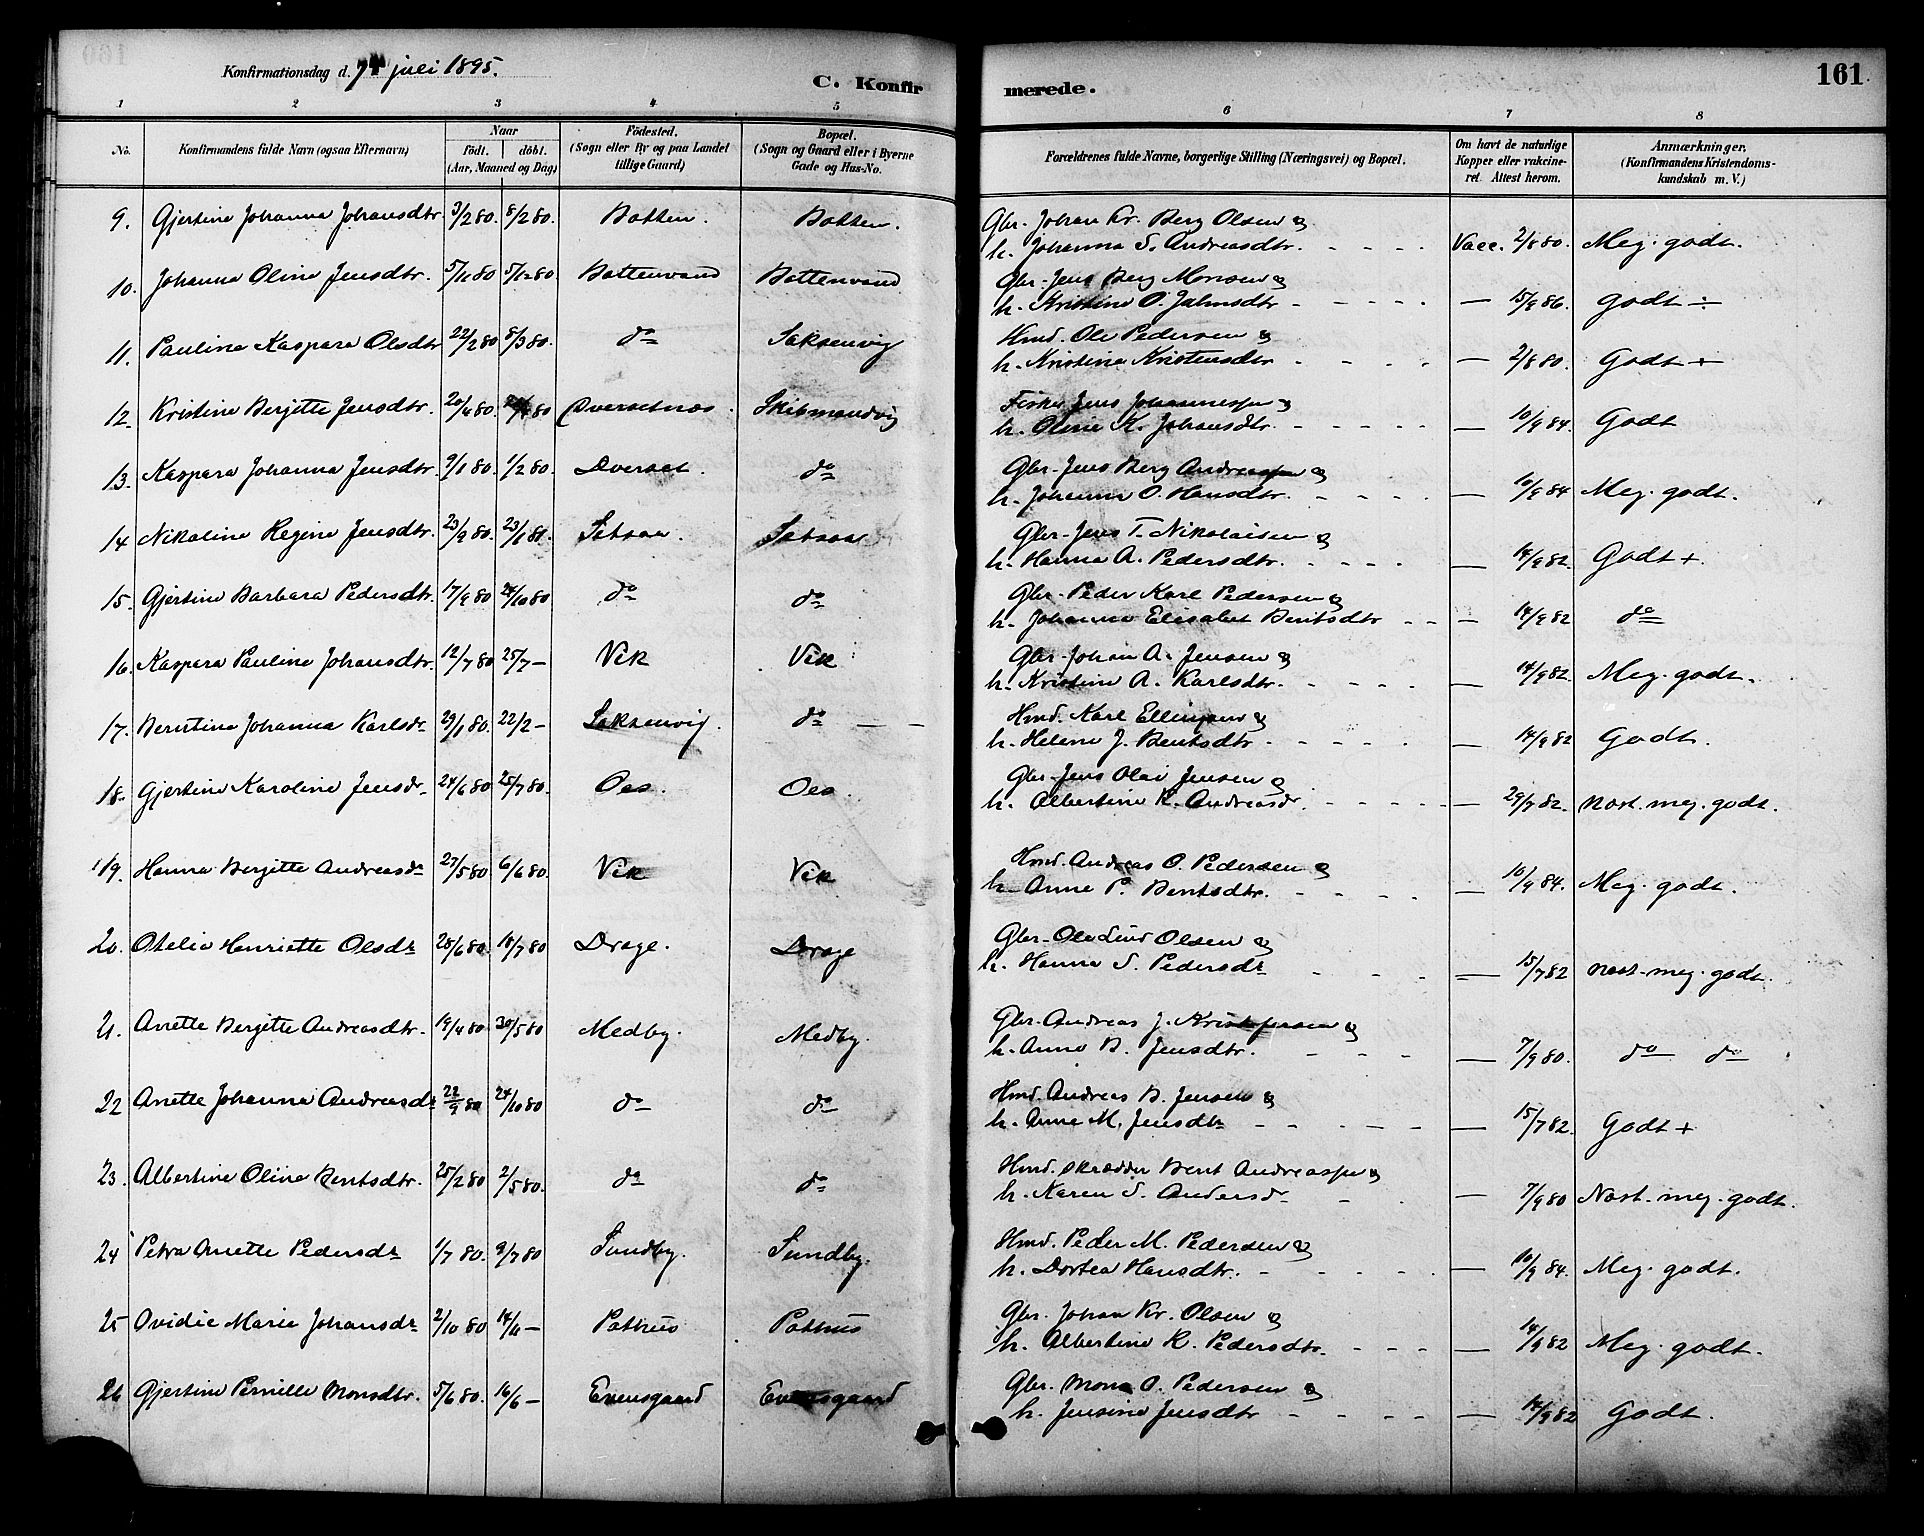 161
Konfirmationsdag d. 7de juli 1895.
C. Konfirmerede.
1 2 3 4 5 6 7 8
No. Konfirmandens fulde Navn (ogsaa Efternavn) Naar födt. döbt. (Aar, Maaned og Dag) Födested. (Sogn eller By og paa Landet tillige Gaard) Bopæl. (Sogn og Gaard eller i Byerne Gade og Hus-No. Forældrenes fulde Navne, borgerlige Stilling (Næringsvei) og Bopæl. Om havt de naturlige Kopper eller vakcineret. Attest herom. Anmærkninger. (Konfirmandens Kristendomskundskab m. V.)
9. Gjertine Johanna Johansdtr 3/2 80. 8/2 80. Botten. Botten. Gbr. Johan Kr. Berg Olsen og
h. Johanna S. Andreasdtr. Vacc. 2/8 80. Meg. godt.
10. Johanna Oline Jensdtr. 5/11 80 5/12 80 Bottenvand Bottenvand Gbr. Jens Berg Monsen og
h. Kristine O. Jahnsdtr — 15/9 86. Godt ÷
11. Pauline Kaspara Olsdtr 22/2 80 8/3 80. do Saksenvig Hmd. Ole Pedersen og
h. Kristine Kristensdtr — 2/8 80. Godt +
12. Kristine Berjitte Jensdtr. 20/4 80. Dversetnæs. Skibmandvig Fisker Jens Johannessen og
h. Oline K. Johansdtr. — 10/9 84. Godt
13. Kaspara Johanna Jensdtr. 9/1 80. 1/2 80. Dverset. do Gbr. Jens Berg Andreassen og
h. Johanna O. Hansdtr. — 10/9 84 Meg. godt.
14 Nikoline Regine Jensdtr. 23/9 80. 23/1 81. Setsaa. Setsaa Gbr. Jens T. Nikolaisen og
h. Hanna A. Pedersdtr. — 14/9 82. Godt +.
15. Gjertine Barbara Pedersdtr. 17/9 80 24/10 80 do do Gbr. Peder Karl Pedersen og
h. Johanna Elisabet Bentsdtr — 14/9 82 do
16. Kaspara Pauline Johansdtr. 12/7 80 25/7 — Vik Vik Gbr. Johan A. Jensen og
h. Kristine A. Karlsdtr. — 14/9 82. Meg. godt.
17. Berntine Johanna Karlsdr 29/1 80. 22/2 — Saksenvig. do — — Hmd. Karl Ellingsen og
h. Helene J. Bentsdtr. — 14/9 82 Godt.
18. Gjertine Karoline Jensdr 24/6 80 25/7 80. Oes. Oes. Gbr. Jens Olai Jensen og
h. Albertine K. Andreasdr. — 29/7 82. Nast. meg. godt.
19. Hanna Berjitte Andreasdr 27/5 80 6/6 80. Vik Vik Hmd. Andreas O. Pedersen og
h. Anne P. Bentsdtr. — 10/9 84. Meg. godt.
20. Otelie Henriette Olsdr 28/6 80. 18/7 80 Drage. Drage Gbr. Ole Lind Olsen og
h. Hanna S. Pedersdr — 15/7 82 Nast. meg. godt.
21. Anette Berjitte Andreasdtr. 19/4 80 30/5 80 Medby. Medby. Gbr. Andreas J. Kristofersen og
h. Anne B. Jensdtr. — 7/9 80. do do
22 Anette Johanna Andreasdr 22/9 80 24/10 80 do do Hmd. Andreas B. Jensen og
h. Anne M. Jensdtr — 15/7 82. Godt +
23. Albertine Oline Bentsdtr. 25/2 80 2/5 80. do do Hmd. skrædder Bent Andreassen og
h. Karen S. Andersdr — 7/9 80 Nast. meg. godt.
24 Petra Anette Pedersdr 1/7 80. 9/7 80 Sundby. Sundby. Hmd. Peder M. Pedersen og
h. Dortea Hansdtr. — 10/9 84. Meg. godt.
25 Ovidie Marie Johansdr 2/10 80 14/11 — Pothus Pothus Gbr. Johan Kr. Olsen og
h. Albertine K. Pedersdtr. — 14/9 82 Meg. godt.
26 Gjertine Pernille Monsdtr. 5/6 80. 16/6 — Evensgaard Evensgaard Gbr. Mons O. Pedersen og
h. Jensine Jensdtr — 14/9 82 Godt.